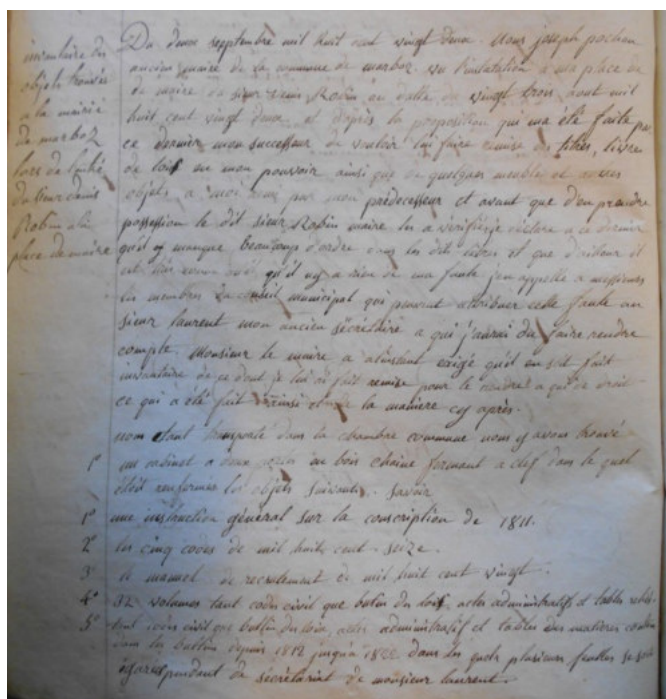 inventaire des
objets trouvés
a la mairie
de marboz
lors de l'entré
du sieur denis
Robin a la
place de maire
Du deux septembre mil huit cent vingt deux. Nous joseph pochon
ancien maire de la commune de marboz. vu l'installation a ma place de
de maire du sieur denis Robin en datte du vingt trois aout mil
huit cent vingt deux et d'après la proposition qui ma été faite par
ce dernier mon successeur de vouloir lui faire remise des titres, livre
de lois en mon pouvoir ainsi que de quelques meuble et autres
objets a moi remis par mon prédecesseur et avant que d'en prendre
possession le dit sieur Robin maire les a vérifiés je déclare a ce dernier
qu'il y manque beaucoup d'ordre dans les dits livres et que d'ailleurs il
est qu'il ny a rien de ma faute j'en appelle a messieurs
les membres du conseil municipal qui peuvent attribuer cette faute au
sieur laurent mon ancien sécrétaire a qui j'aurai du faire rendre
compte. Monsieur le maire a exigé qu'il en soit fait
inventaire de ce dont je lui ai fait remise pour le rendre a qui de droit
ce qui a été fait ainsi et de la manière cy après.
nous étant transporté dans la chambre commune nous y avons trouvé
1° un cabinet a deux portes en bois chaine fermant a clef dans le quel
étoit renfermer les objets suivants. Savoir
1° une instruction général sur la conscription de 1811.
2° les cinq codes de mil huits cent - seize.
3° le manuel de recrutement de mil huit cent vingt.
4° 32 volumes tant codes civil que butin des lois, actes administratifs et tables reliés.
5° tant codes civil que bulletin des lois, actes administratif et tables des matieres
dans les bulletins depuis 1812 jusqu'à 1822 dans les quels plusieurs feuilles se sont
égarés pendant le sécrétariat de monsieur laurent.